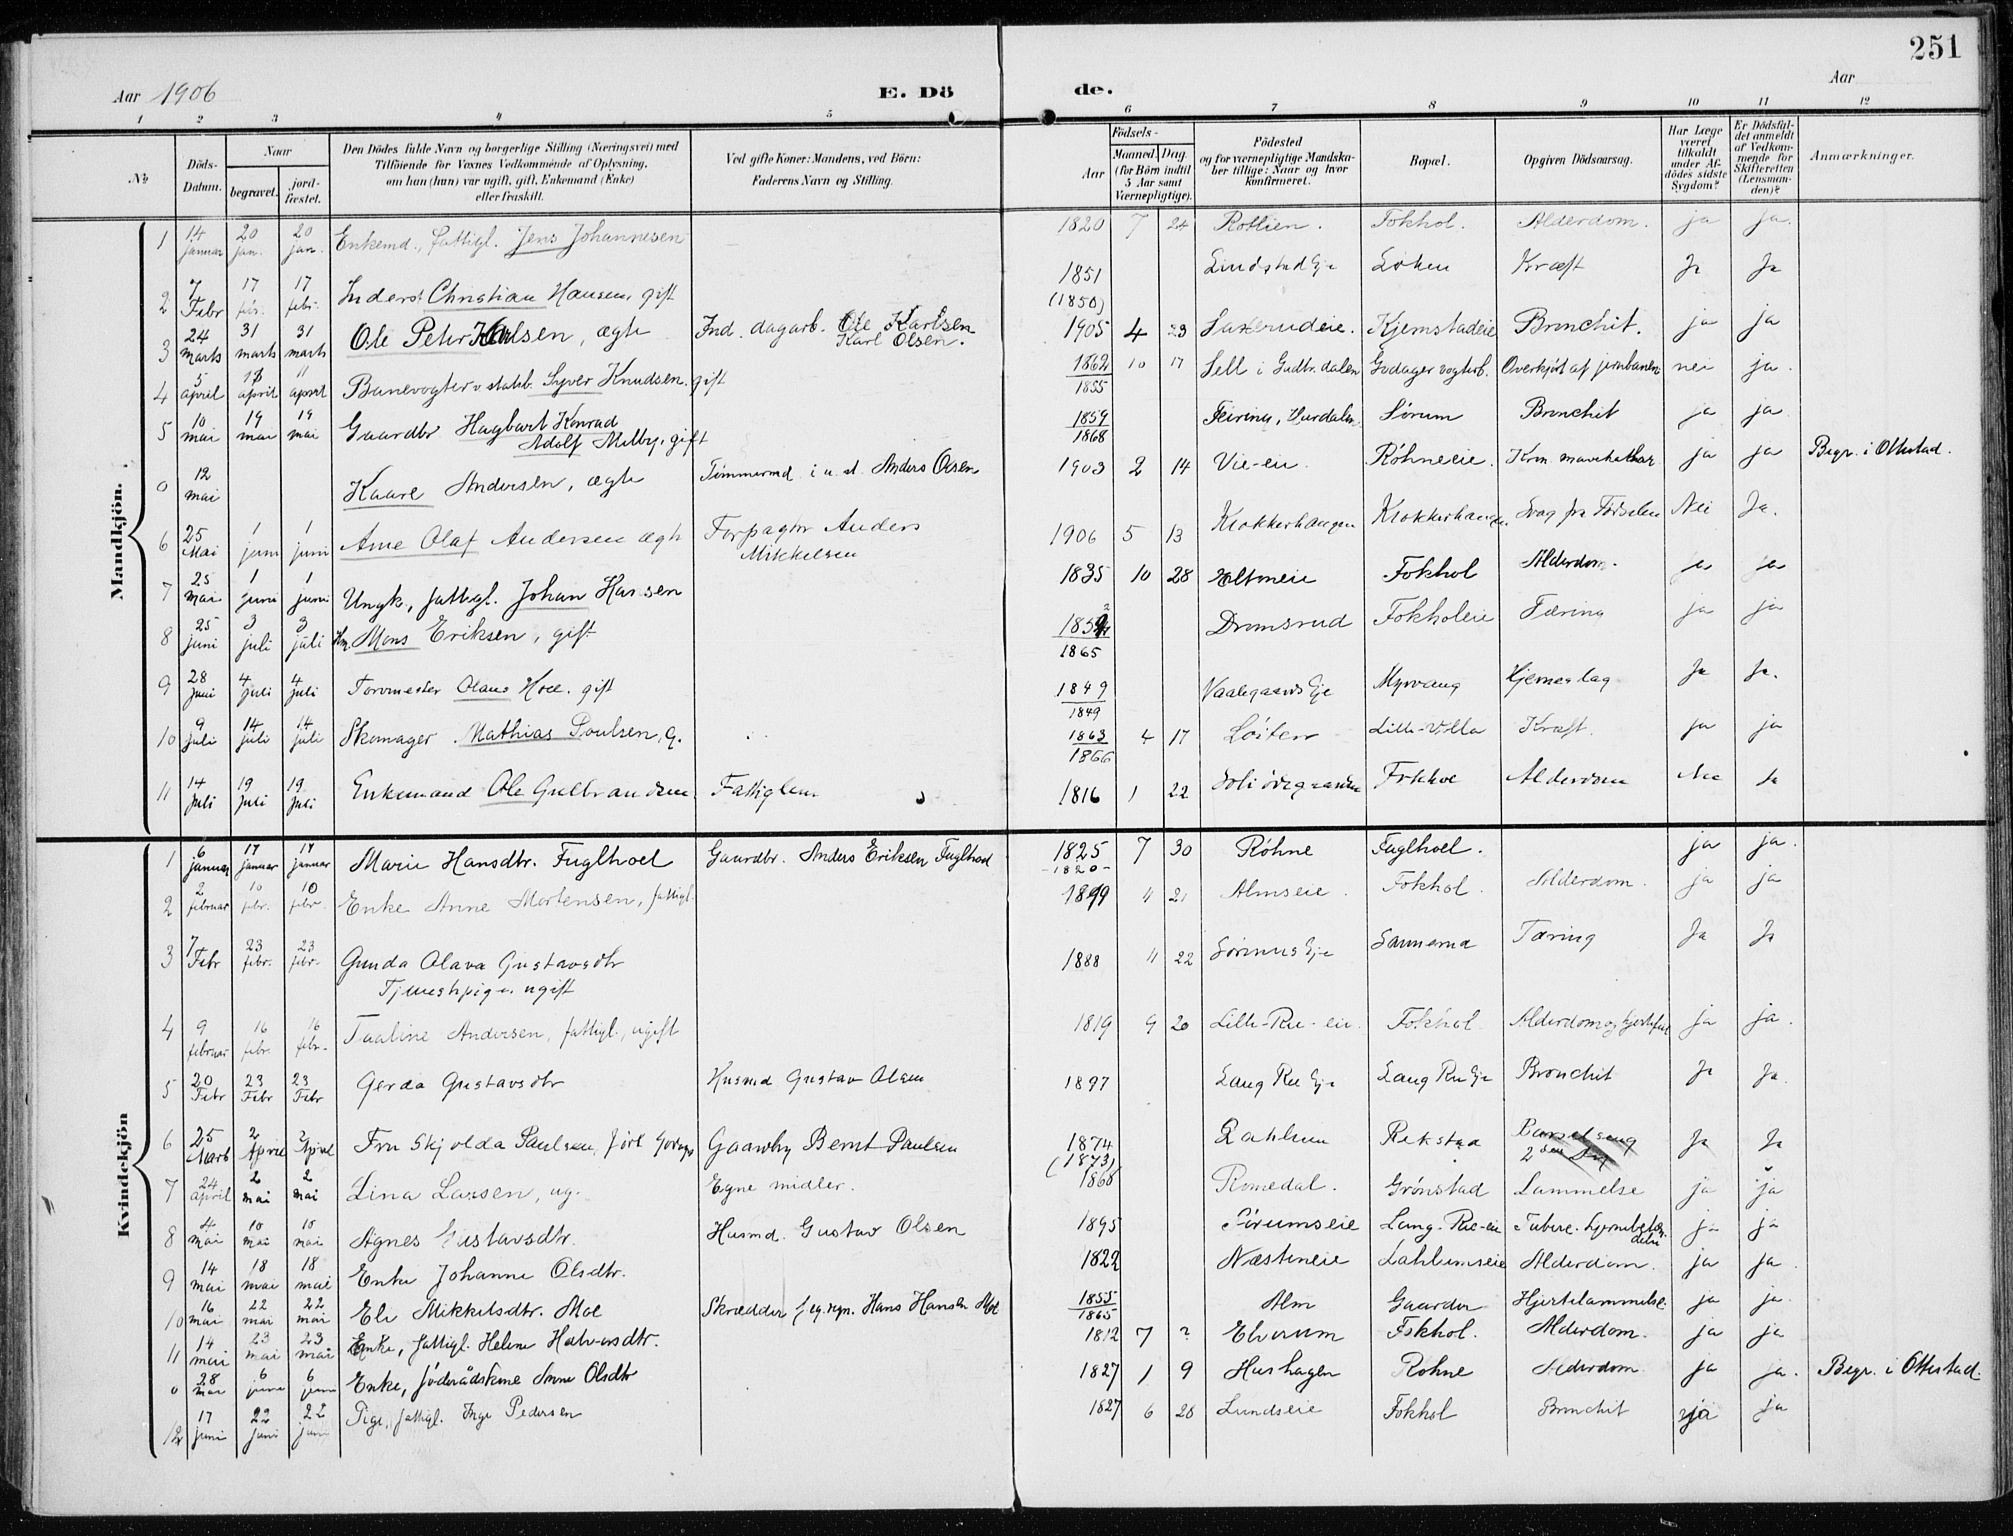 251
Aar 1906 E. Dö de. Aar
1 2 3 4 5 6 7 8 9 10 11 12
№ Döds-Datum. Naar begravet. jordfæstet. Den Dödes fulde Navn og borgerlige Stilling (Næringsvei) med Tilföiende for Voxnes Vedkommende af Oplysning, om han (hun) var ugift, gift, Enkemand (Enke) eller fraskilt. Ved gifte Koner: Mandens, ved Börn: Faderens Navn og Stilling. Födsels- Aar Maaned. Dag. (for Börn indtil 5 Aar samt Værnepligtige). Födested og for værnepligtige Mandskaber tillige: Naar og hvor konfirmeret. Bopæl. Opgiven Dödsaarsag. Har Læge været tilkaldt under Afdödes sidste Sygdom? Er Dödsfaldet anmeldt af Vedkommende for Skifteretten (Lensmanden)? Anmærkninger.
Mandkjön.
1 14 januar 20 jan. 20 jan. Enkemd., fattigl. Jens Johannesen 1820 7 24 Rotlien. Fokhol. Alderdom. ja ja.
2 7 Febr 17 febr. 17 febr. Inderst Christian Hansen, gift 1851 (1850) Lindstad Eje Løken Kræft Ja Ja
3 24 marts 31 marts 31 marts Ole Peter Karlsen, ægte Ind. dagarb. Ole Karlsen Karl Olsen. 1905 4 23 Saxerudeie. Kjemstadeie Bronchit. ja ja
4 5 april 11 april 11 april Banevogter v statsb. Syver Knudsen. gift 1862 1855 10 17 Sell i Gudbr.dalen Godager vogterb. Overkjørt af jernbanen nei ja.
5 10 mai 19 mai 19 mai Gaardbr Hagbart Konrad Adolf Melby, gift 1859 1868 Feiring, Hurdalen Sørum Bronchit ja ja
0 12 mai Kaare Andersen, ægte Tømmermd. i u. st. Anders Olsen 1903 2 14 Vie-eie. Røhneeie. Kron. mavekathar ja ja Begr. i Ottestad.
6 25 Mai 1 juni 1 juni Arne Olaf Andersen ægte Forpagter Anders Mikkelsen 1906 5 13 Klokkerhaugen Klokkerhaugen Svag fra Fødselen Nei Ja.
7 25 mai 1 juni 1 juni Ungk., fattigl. Johan Hansen 1835 10 28 Eltoneie Fokhol Alderdom. ja ja
8 25 juni 3 juli 3 juli Hm. Mons Eriksen, gift 1865 Dromsrud Fokholeie Tæring ja ja
9 28 juni 4 juli 4 juli Tommester Olaus Hoel. gift 1849 1849 Vaalegaards Eje Myrvang Hjerneslag Ja Ja.
10 9 juli 14 juli 14 juli Skomager Mathias Poulsen, g. 1863 1866 4 17 Løiten Lille-Villa Kræft. ja ja
11 14 juli 19 juli 19 juli Enkemand Ole Gulbrandsen Fattiglem 1816 1 22 Fokhol Alderdom Nei Ja
Kvindekjön
1 6 januar 14 januar 14 januar Marie Hansdtr. Fuglhoel Gaardbr. Anders Eriksen Fuglhoel 1825 -1820- 7 30 Røhne Fuglhoel. ja ja.
2 2 februar 10 febr. 10 febr. Enke Anne Mortensen, fattigl. 11 21 Almseie. Fokhol. Alderdom. ja ja
3 7 Febr 23 febr. 23 febr. Gunda Olava Gustavsdtr Tjenestepige. ugift 1888 11 22 Sørums Eje Sannerud Tæring Ja Ja
4 9 februar 16 febr. 16 febr. Taaline Andersen, fattigl., ugift 1819 9 20 Lille-Rie-eie. Fokhol. Alderdom og hjertefeil ja ja.
5 20 Febr 23 Febr 23 Febr Gerda Gustavsdtr Husmd Gustav Olsen 1897 Lang Rie Eje Lang Rie Eje Bronchit Ja Ja.
6 25 Marts 2 April 2 April Fru Skjolda Paulsen, født Gaardbr Bernt Paulsen 1874 (1873) Rekstad Barselseng 2den Dag Ja Ja
7 24 april 2 mai 2 mai Lina Larsen, ug. Egne midler. 1868 Romedal. Grønstad Lammelse ja ja
8 4 mai 10 mai 10 mai Agnes Gustavsdtr. Husmd. Gustav Olsen 1895 Sørumseie Lang-Rie-eie Tuberc. hjernebetændelse ja ja
9 14 mai 18 mai 18 mai Enke Johanne Olsdtr. 1822 Næsteneie Lahlumseie Alderdom. ja ja.
10 16 mai 22 mai 22 mai Eli Mikkelsdtr. Moe Skrædder Hans Hansen Moe 1855 1865 Alm Gaarder Hjertelammelse. ja ja.
11 14 mai 23 mai 23 mai Enke, fattigl. Helene Halvorsdtr. 1812 7 ? Elverum Fokhol. Alderdom. ja ja
0 28 mai 6 juni 6 juni Enke, føderådskone Anne Olsdtr 1827 1 9 Hushagen Røhne Alderdom ja ja. Begr. i Ottestad.
12 17 juni 22 juni 22 juni Pige, fattigl. Inge Pedersen 1827 6 28 Lundseie Fokhol Bronchit ja ja